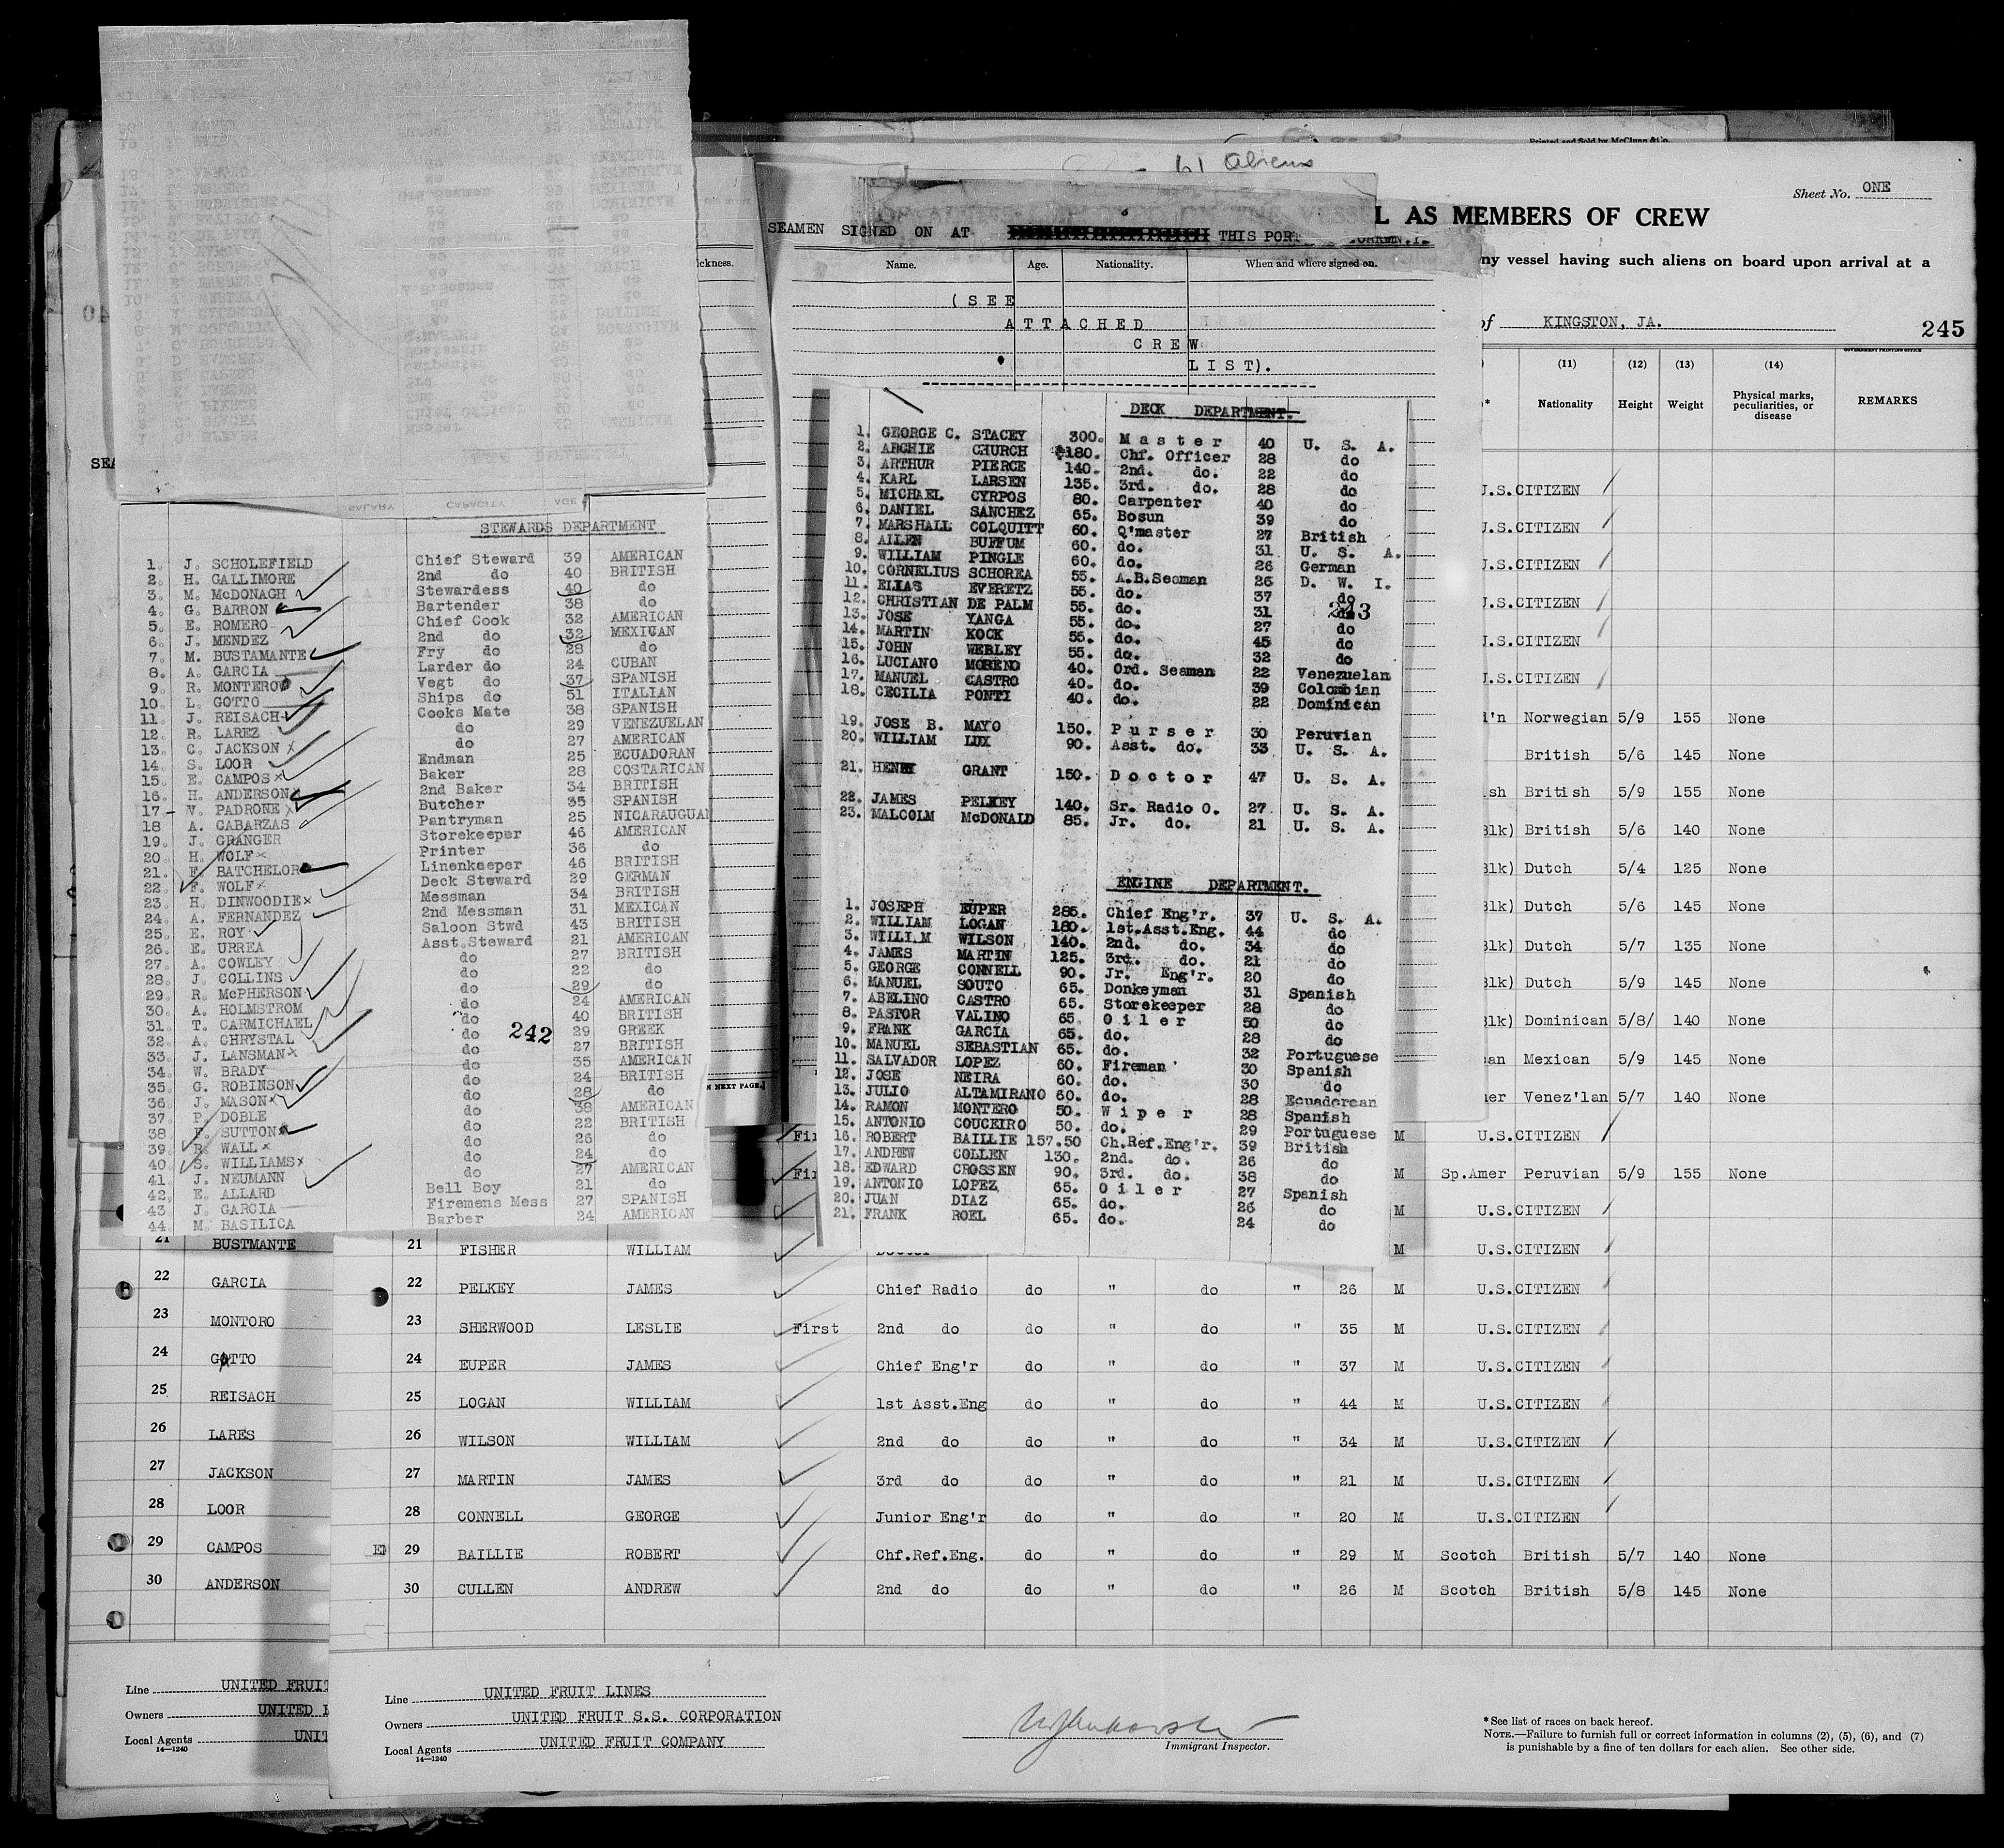 61 Aliens
Printed and Sold by McClunn & Co.
Sheet No. ONE
L AS MEMBERS OF CREW
SEAMEN SIGNED ON AT THIS PORT
ny vessel having such aliens on board upon arrival at a
Name. Age. Nationality. When and where signed on.
ckness.
(SEE
ATTACHED
CREW
LIST).
of KINGSTON, JA.
245
GOVERNMENT PRINTING OFFICE
(11) (12) (13) (14)
Nationality Height Weight Physical marks, peculiarities, or disease REMARKS
SALARY CAPACITY AGE
STEWARDS DEPARTMENT
1. J. SCHOLEFIELD Chief Steward 39 AMERICAN
2. H. GALLIMORE 2nd do 40 BRITISH
3. M. McDONAGH Stewardess 40 do
4. G. BARRON Bartender 38 do
5. E. ROMERO Chief Cook 32 AMERICAN
6. J. MENDEZ 2nd do 32 MEXICAN
7. M. BUSTAMANTE Fry do 28 do
8. A. GARCIA Larder do 24 CUBAN
9. R. MONTERO Vegt do 37 SPANISH
10. L. GOTTO Ships do 51 ITALIAN
11. J. REISACH Cooks Mate 38 SPANISH
12. R. LAREZ do 29 VENEZUELAN
13. C. JACKSON do 27 AMERICAN
14. S. LOOR Endman 25 ECUADORAN
15. E. CAMPOS Baker 28 COSTARICAN
16. H. ANDERSON 2nd Baker 34 BRITISH
17. V. PADRONE Butcher 35 SPANISH
18 A. CABARZAS Pantryman 25 NICARAUGUAN
19. J. GRANGER Storekeeper 46 AMERICAN
20. H. WOLF Printer 36 do
21. F. BATCHELOR Linenkeeper 46 BRITISH
22. F. WOLF Deck Steward 29 GERMAN
23. H. DINWOODIE Messman 34 BRITISH
24. A. FERNANDEZ 2nd Messman 31 MEXICAN
25. E. ROY Saloon Stwd 43 BRITISH
26. E. URREA Asst.Steward 21 AMERICAN
27. A. COWLEY do 27 BRITISH
28. J. COLLINS do 22 do
29. R. McPHERSON do 29 do
30. A. HOLMSTROM do 24 AMERICAN
31. T. CARMICHAEL do 40 BRITISH
32. A. CHRYSTAL do 29 GREEK
33. J. LANSMAN do 27 BRITISH
34. W. BRADY do 35 AMERICAN
35. G. ROBINSON do 24 BRITISH
36. J. MASON do 28 do
37. P. DOBLE do 38 AMERICAN
38. F. SUTTON do 22 BRITISH
39. R. WALL do 26 do
40. S. WILLIAMS do 24 do
41. J. NEUMANN do 27 AMERICAN
42. E. ALLARD Bell Boy 21 do
43. J. GARCIA Firemens Mess 27 SPANISH
44. M. BASILICA Barber 24 AMERICAN
242
DECK DEPARTMENT.
1. GEORGE C. STACEY 300. Master 40 U. S. A.
2. ARCHIE CHURCH 180. Chf. Officer 28 do
3. ARTHUR PIERCE 140. 2nd. do. 22 do
4. KARL LARSEN 135. 3rd. do. 28 do
5. MICHAEL CYRPOS 80. Carpenter 40 do
6. DANIEL SANCHEZ 65. Bosun 39 do
7. MARSHALL COLQUITT 60. Q'master 27 British
8. AILEN BUFFUM 60. do. 31 U. S. A.
9. WILLIAM PINGLE 60. do. 26 German
10. CORNELIUS SCHOREA 55. A.B.Seaman 26 D. W. I.
11. ELIAS EVERETZ 55. do. 37 do
12. CHRISTIAN DE PALM 55. do. 31 do
13. JOSE YANGA 55. do. 27 do
14. MARTIN KOCK 55. do. 45 do
15. JOHN WEBLEY 55. do. 32 do
16. LUCIANO MORENO 40. Ord. Seaman 22 Venezuelan
17. MANUEL CASTRO 40. do. 39 Colombian
18. CECILIA PONTI 40. do. 22 Dominican
19. JOSE B. MAYO 150. Purser 30 Peruvian
20. WILLIAM LUX 90. Asst. do. 33 U. S. A.
21. HENRY GRANT 150. Doctor 47 U. S. A.
22. JAMES PELKEY 140. Sr. Radio O. 27 U. S. A.
23. MALCOLM McDONALD 85. Jr. do. 21 U. S. A.
243
ENGINE DEPARTMENT.
1. JOSEPH EUPER 285. Chief Eng'r. 37 U. S. A.
2. WILLIAM LOGAN 180. 1st.Asst.Eng. 44 do
3. WILLIAM WILSON 140. 2nd. do. 34 do
4. JAMES MARTIN 125. 3rd. do. 21 do
5. GEORGE CONNELL 90. Jr. Eng'r. 20 do
6. MANUEL SOUTO 65. Donkeyman 31 Spanish
7. ABELINO CASTRO 65. Storekeeper 28 do
8. PASTOR VALINO 65. Oiler 50 do
9. FRANK GARCIA 65. do. 28 do
10. MANUEL SEBASTIAN 65. do. 32 Portuguese
11. SALVADOR LOPEZ 60. Fireman 30 Spanish
12. JOSE NEIRA 60. do. 30 do
13. JULIO ALTAMIRANO 60. do. 28 Ecuadorean
14. RAMON MONTERO 50. Wiper 28 Spanish
15. ANTONIO COUCEIRO 50. do. 29 Portuguese
16. ROBERT BAILLIE 157.50 Ch.Ref.Eng'r. 39 British
17. ANDREW COLLEN 130. 2nd. do. 26 do
18. EDWARD CROSSEN 90. 3rd. do. 38 do
19. ANTONIO LOPEZ 65. Oiler 27 Spanish
20. JUAN DIAZ 65. do. 26 do
21. FRANK ROEL 65. do. 24 do
U.S.CITIZEN
U.S.CITIZEN
U.S.CITIZEN
U.S.CITIZEN
U.S.CITIZEN
U.S.CITIZEN
l'n Norwegian 5/9 155 None
British 5/6 145 None
sh British 5/9 155 None
Blk) British 5/6 140 None
Blk) Dutch 5/4 125 None
Blk) Dutch 5/6 145 None
Blk) Dutch 5/7 135 None
Blk) Dutch 5/9 145 None
Blk) Dominican 5/8/ 140 None
an Mexican 5/9 145 None
mer Venez'lan 5/7 140 None
N NEXT PAGE.]
Fir M U.S.CITIZEN
Fir M Sp.Amer Peruvian 5/9 155 None
M U.S.CITIZEN
21 BUSTMANTE
22 GARCIA
23 MONTORO
24 GOTTO
25 REISACH
26 LARES
27 JACKSON
28 LOOR
29 CAMPOS
30 ANDERSON
21 FISHER WILLIAM Doctor M U.S.CITIZEN
22 PELKEY JAMES Chief Radio do " do " 26 M U.S.CITIZEN
23 SHERWOOD LESLIE First 2nd do do " do " 35 M U.S.CITIZEN
24 EUPER JAMES Chief Eng'r do " do " 37 M U.S.CITIZEN
25 LOGAN WILLIAM 1st Asst.Eng do " do " 44 M U.S.CITIZEN
26 WILSON WILLIAM 2nd do do " do " 34 M U.S.CITIZEN
27 MARTIN JAMES 3rd do do " do " 21 M U.S.CITIZEN
28 CONNELL GEORGE Junior Eng'r do " do " 20 M U.S.CITIZEN
29 BAILLIE ROBERT Chf.Ref.Eng. do " do " 29 M Scotch British 5/7 140 None
30 CULLEN ANDREW 2nd do do " do " 26 M Scotch British 5/8 145 None
Line UNITED FRUIT
Owners UNITED
Local Agents UNIT
14—1240
Line UNITED FRUIT LINES
Owners UNITED FRUIT S.S. CORPORATION
Local Agents UNITED FRUIT COMPANY
14—1240
Immigrant Inspector.
*See list of races on back hereof.
NOTE.—Failure to furnish full or correct information in columns (2), (5), (6), and (7)
is punishable by a fine of ten dollars for each alien. See other side.